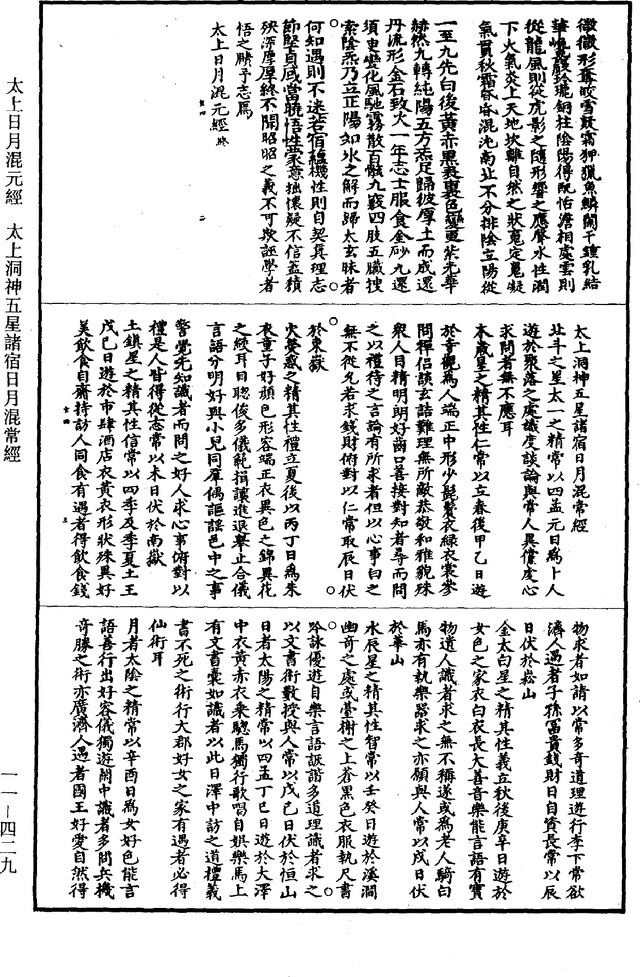 徽徽形奪皎雪蔑霜狎獵魚鱗闌干鍾乳結
華巉巖玲瓏銅柱陰陽得配怡澹相處雲則
從龍風則從虎影之隨形響之應聲水性潤
下火氣炎上天地坎離自然之狀魂定魄凝
氣貫秋霜昏昏混沌南北不分排陰立陽從
一至九先白後黃赤黑表裏色變更紫光華
赫然九轉純陽五方炁足歸彼厚土而成還
丹流形金石致火一年志士服食金砂九還
須臾變化風馳霧散百骸九竅四肢五臟搜
索陰炁乃立正陽如氷之解而歸太玄昧者
何知遇則不迷若宿蘊機性則自契真理志
節堅貞咸當曉悟性蒙意拙懷疑不信蓋積
殃深厚厚終不聞昭昭之義不可欺誑學者
悟之賸予志焉
太上日月混元經終
太上洞神五星諸宿日月混常經
北斗之星太一之精常以四孟元日爲卜人
遊於聚落之處識度談論與常人異儻虔心
求問者無不應耳
木歲星之精其性仁常以立春後甲乙日遊
於寺觀爲人端正中形少髭鬢衣綠衣裳參
問禪侣談玄詰難理無所敵恭敬和雅貌殊
衆人目精明朗好齒口善接對知者尋而問
之以禮待之言論有所求者但以心事白之
無不從允若求錢財俯對以仁常取辰日伏
於東嶽
火熒惑之精其性禮立夏後以丙丁日爲朱
衣童子好顏色形容端正衣異色之錦異花
之綾耳目聰俊多儀範揖讓進退舉止合儀
言語分明好與小兒同羣偶謳謠邑中之事
警覺先知識者而問之好人求心事俯對以
禮是人皆得從志常以未日伏於南嶽
土鎮星之精其性信常以四季及季夏土王
戊己日遊於市肆酒店衣黃衣形狀殊異好
美飲食自齋持訪人同食有遇者得飲食錢
物求者如諸以常多奇道理遊行李下常欲
濟人遇者子孫冨貴錢財日自資長常以辰
日伏於嵩山
金太白星之精其性義立秋後庚辛日遊於
女色之家衣白衣長大善音樂能言語有寳
物遺人識者求之無不稱遂或爲老人騎白
馬亦有執樂器求之亦願與人常以戌日伏
於華山
水辰星之精其性智常以壬癸日遊於溪澗
幽奇之處或臺榭之上着黑色衣服執尺書
吟詠優遊自樂言語詼諧多道理識者求之
以文書術數授與人常以戊己日伏於恒山
日者太陽之精常以四孟丁巳日遊於大澤
中衣黃赤衣乘驄馬獨行歌唱自娯樂馬上
有文書囊如識者以此日澤中訪之道禮義
書不死之術行大郡好女之家有遇者必得
仙術耳
月者太陰之精常以辛酉日爲女好色能言
語善行出好容儀獨遊闤中識者多問兵機
奇勝之術亦廣濟人遇者國王好愛自然得
太上日月混元經　太上洞神五星諸宿日月混常經
一一—四二九